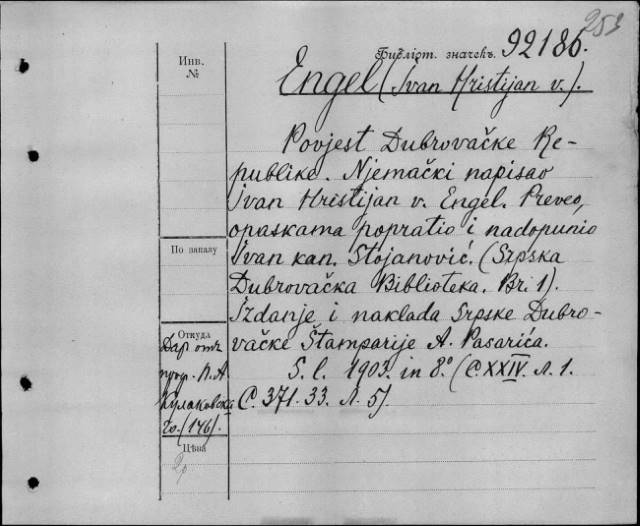 253
Библіот. значекъ. 92186.
Инв.
№
Engel (Ivan Hristijan v.).
Povjest Dubrovačke Re-
publike. Njemački napisao
Ivan Hristijan v. Engel. Preveo,
opaskama popratio i nadopunio
Ivan kan. Stojanović. (Srpska
Dubrovačka Biblioteka. Br. 1).
Izdanje i naklada Srpske Dubro-
vačke Štamparije A. Pasarića.
S. l. 1903. in 8.° (C. XXIV. л. 1.
С. 371. 33. л. 5).
По заказу
Откуда
Даръ отъ
проф. П. А.
Кулаковска
го. (146).
Цѣна
2р